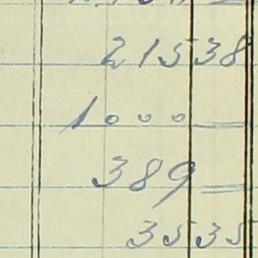 21538
1000 —
389 —
3535